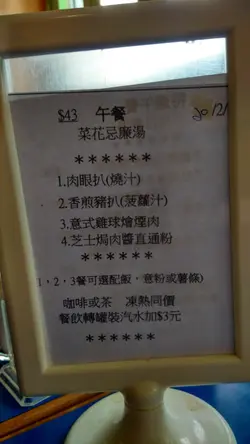 $43 午餐
菜花忌廉湯
******
1.肉眼扒(燒汁)
2.香煎豬扒(菠蘿汁)
3.意式雞球燴煙肉
4.芝士焗肉醬直通粉
******
1,2,3餐可選配飯,意粉或薯條)
咖啡或茶 凍熱同價
餐飲轉罐裝汽水加$3元
******